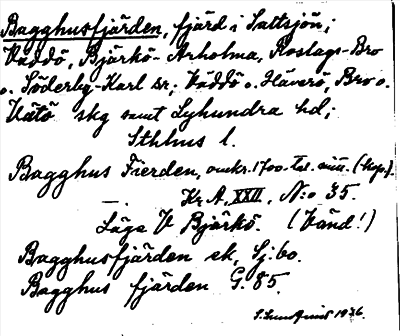 Bagghusfjärden, fjärd i Saltsjön;
Väddö, Björkö-Arholma, Roslags-Bro
o. Söderby-Karl sr; Väddö o. Häverö, Bro o.
Vätö skg samt Lyhundra hd;
Sthlms l.
Bagghus Fierden, omkr. 1700-tal. mitt. (kop.).
— Kr. A. XXII, N:o 35.
Läge V Björkö. (Vänd!)
Bagghusfjärden ek, Sj. 60.
Bagghus fjärden G. 85.
1936.